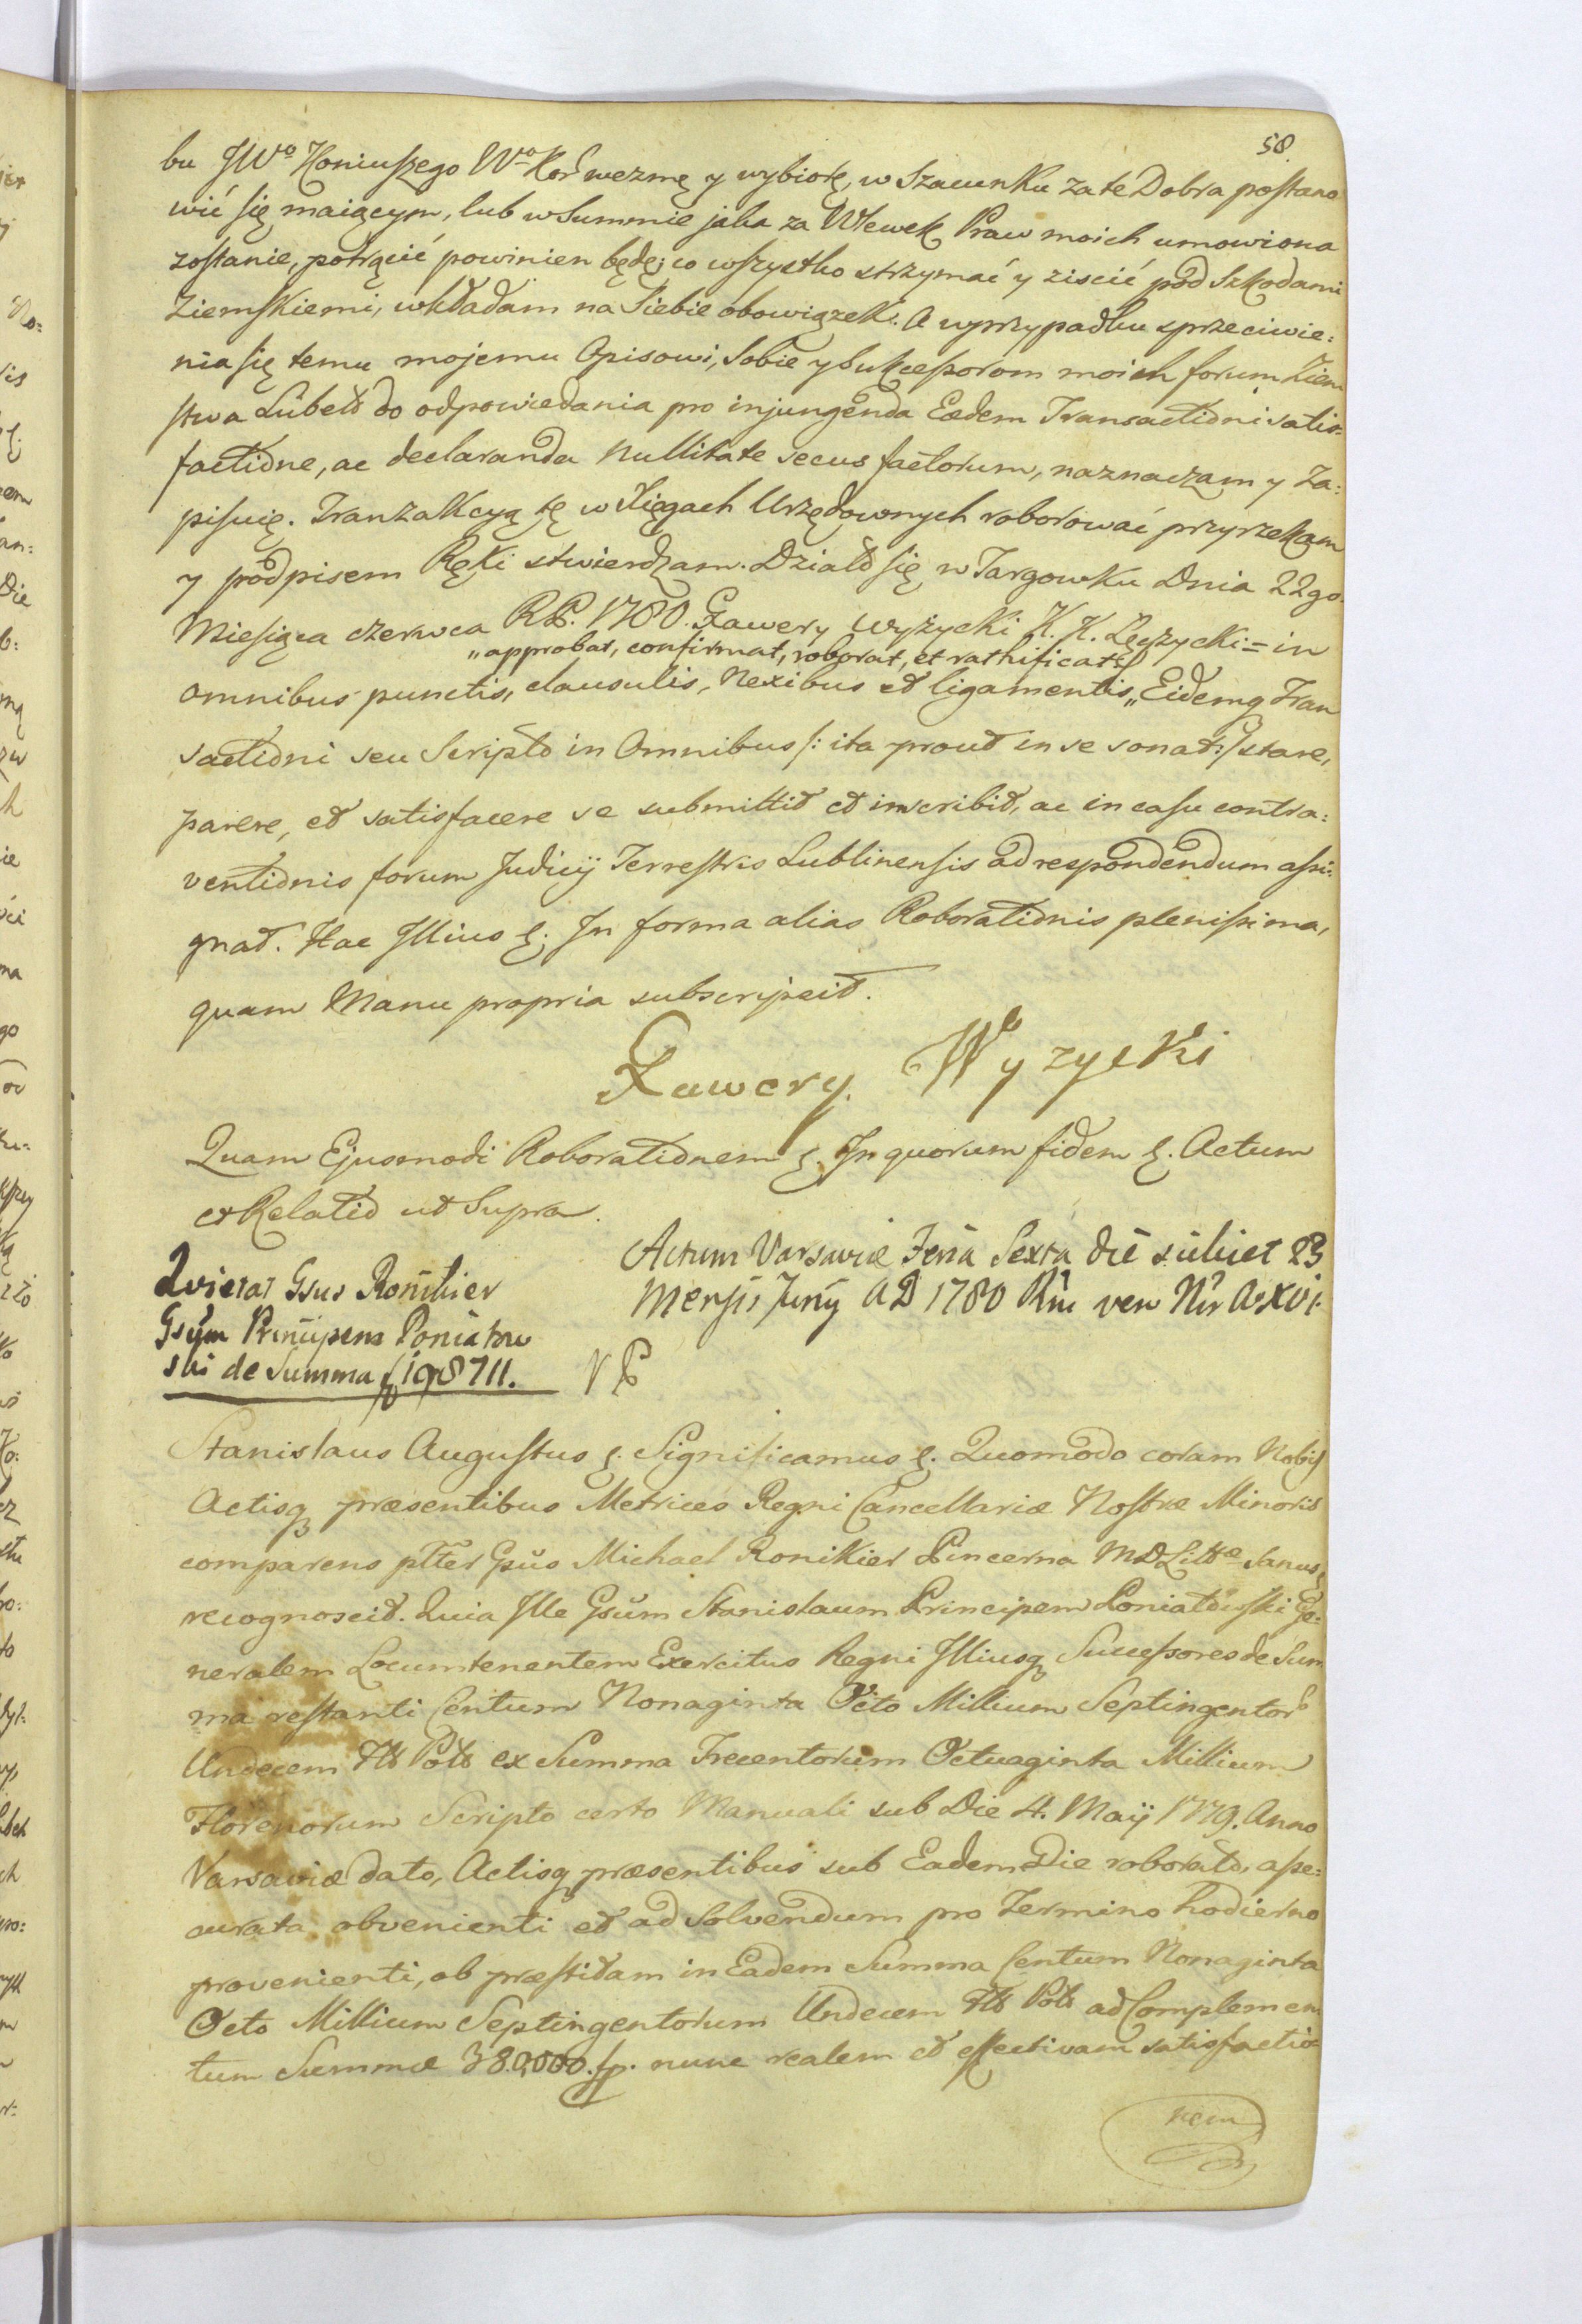 58.
bu JWo Koniuszego Wo Kor wezmę y wybiorę, w Szacunku za te Dobra postano
wić się maiącym, lub w Summie jaka za Wlewek Praw moich umowiona
zostanie, potrącić powinien będę; co wszystko strzymać y ziscić pod Szkodami
Ziemskiemi, wkładam na Siebie obowiązek. A wprzypadku sprzeciwie:
nia się temu mojemu Opisowi, Sobie y Sukcessorom moich forum Ziem
stwa Lubels do odpowiedania pro injungenda Eadem Transactioni satis
factione, ac declaranda nullitate secus factorum, naznaczam y Za:
pisuię. Tranzakcyą tę w Xięgach Urzędownych roborować przyrzekam
y podpisem Ręki stwierdzam. Działo się w Targowku Dnia 22go
Miesiąca czerwca RP. 1780. Xawery Wyżycki K. K. Łęczycki:= in
„approbat, confirmat, roborat, et rathificat:/
omnibus punctis, clausulis, Nexibus et ligamentis„ Eidemq Tran
sactioni seu Scripto in Omnibus /: ita prout in se sonat:/ stare,
parere, et satisfacere se submittit et inscribit, ac in casu contra:
ventionis forum Judicij Terrestris Lublinensis ad respondendum assi:
gnat. Hac Illius &. In forma alias Roborationis plenissima,
quam Manu propria subscripsit.
Xawery. Wyzycki
Quam Ejusmodi Roborationem &. In quorum fidem &. Actum
et Relatio ut Supra.
Actum Varsaviæ Feria Sexta die scilicet 23
Mensis Junij AD 1780 Rni vero Nri A. XVI.
Quietat Gsus Ronikier
Gsum Principem Poniatow
ski de Summa f 198711.
V P
Stanislaus Augustus &. Significamus &. Quomodo coram Nobis
Actisq præsentibus Metrices Regni Cancellariæ Nostræ Minoris
comparens ptter Gsus Michael Ronikier Pincerna MDLittæ Sanus &
recognoscit. Quia Ille Gsum Stanislaum Principem Poniatowski Ge:
neralem Locumtenentem Exercitus Regni Illiusq Successores de Sum
ma restanti Centum Nonaginta Octo Millium Septingentor
Undecem Fls Pols ex Summa Trecentorum Octuaginta Millium
Florenorum Scripto certo Manuali sub Die 4. Maij 1779. Anno
Varsaviæ dato, Actisq præsentibus sub Eadem Die roborato, asse:
curata obvenienti et ad Solvendum pro Termino hodierno
provenienti, ob præstitam in Eadem Summa Centum Nonaginta
Octo Millium Septingentorum Undecem Fls Pols ad Complemen
tum Summæ 380,000. fp. nunc realem et effectivam satisfactio
nem